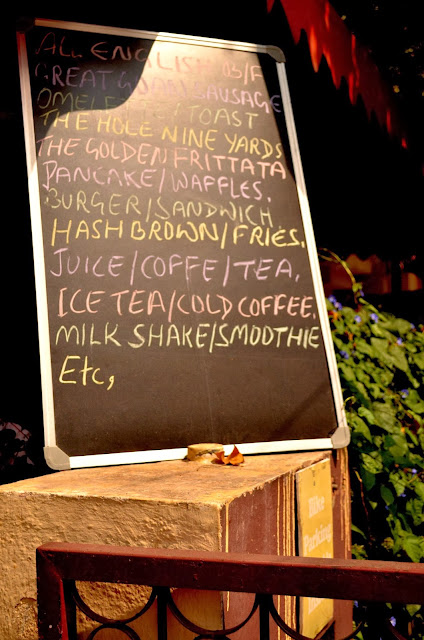 ALL ENGLISH B/F
GREAT GOAN SAUSAGE
OMELETTE/TOAST
THE HOLE NINE YARDS
THE GOLDEN FRITTATA
PANCAKE/WAFFLES.
BURGER/SANDWICH
HASHBROWN/FRIES.
JUICE/COFFE/TEA.
ICE TEA/COLD COFFEE.
MILK SHAKE/SMOOTHIE
Etc,
Bike
Parking